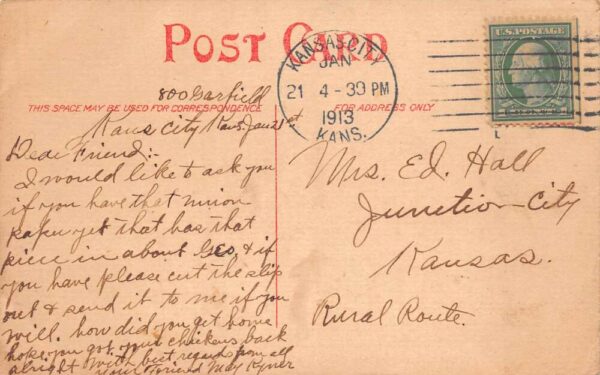 POST CARD
KANSAS CITY
JAN
21 4-30 PM
1913
KANS.
U.S. POSTAGE
THIS SPACE MAY BE USED FOR CORRESPONDENCE
FOR ADDRESS ONLY
800 Garfield
Kans City Kans Jan 21st
Dear Friend:-
I would like to ask you
if you have that union
paper yet that has that
piece in about Geo, & if
you have please cut the slip
out & send it to me if you
will. how did you get home
hope you got your chickens back
alright with best regards from all
your friend May
Mrs. Ed. Hall
Junction City
Kansas.
Rural Route.